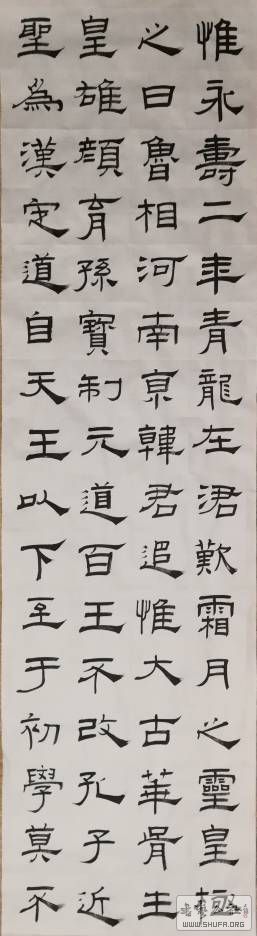 惟永壽二年青龍在涒歎霜月之靈皇極
之日魯相河南京韓君追惟大古華胥生
皇雄顏育孫寶制元道百王不改孔子近
聖爲漢定道自天王以下至于初學莫不
WWW.SHUFA.ORG